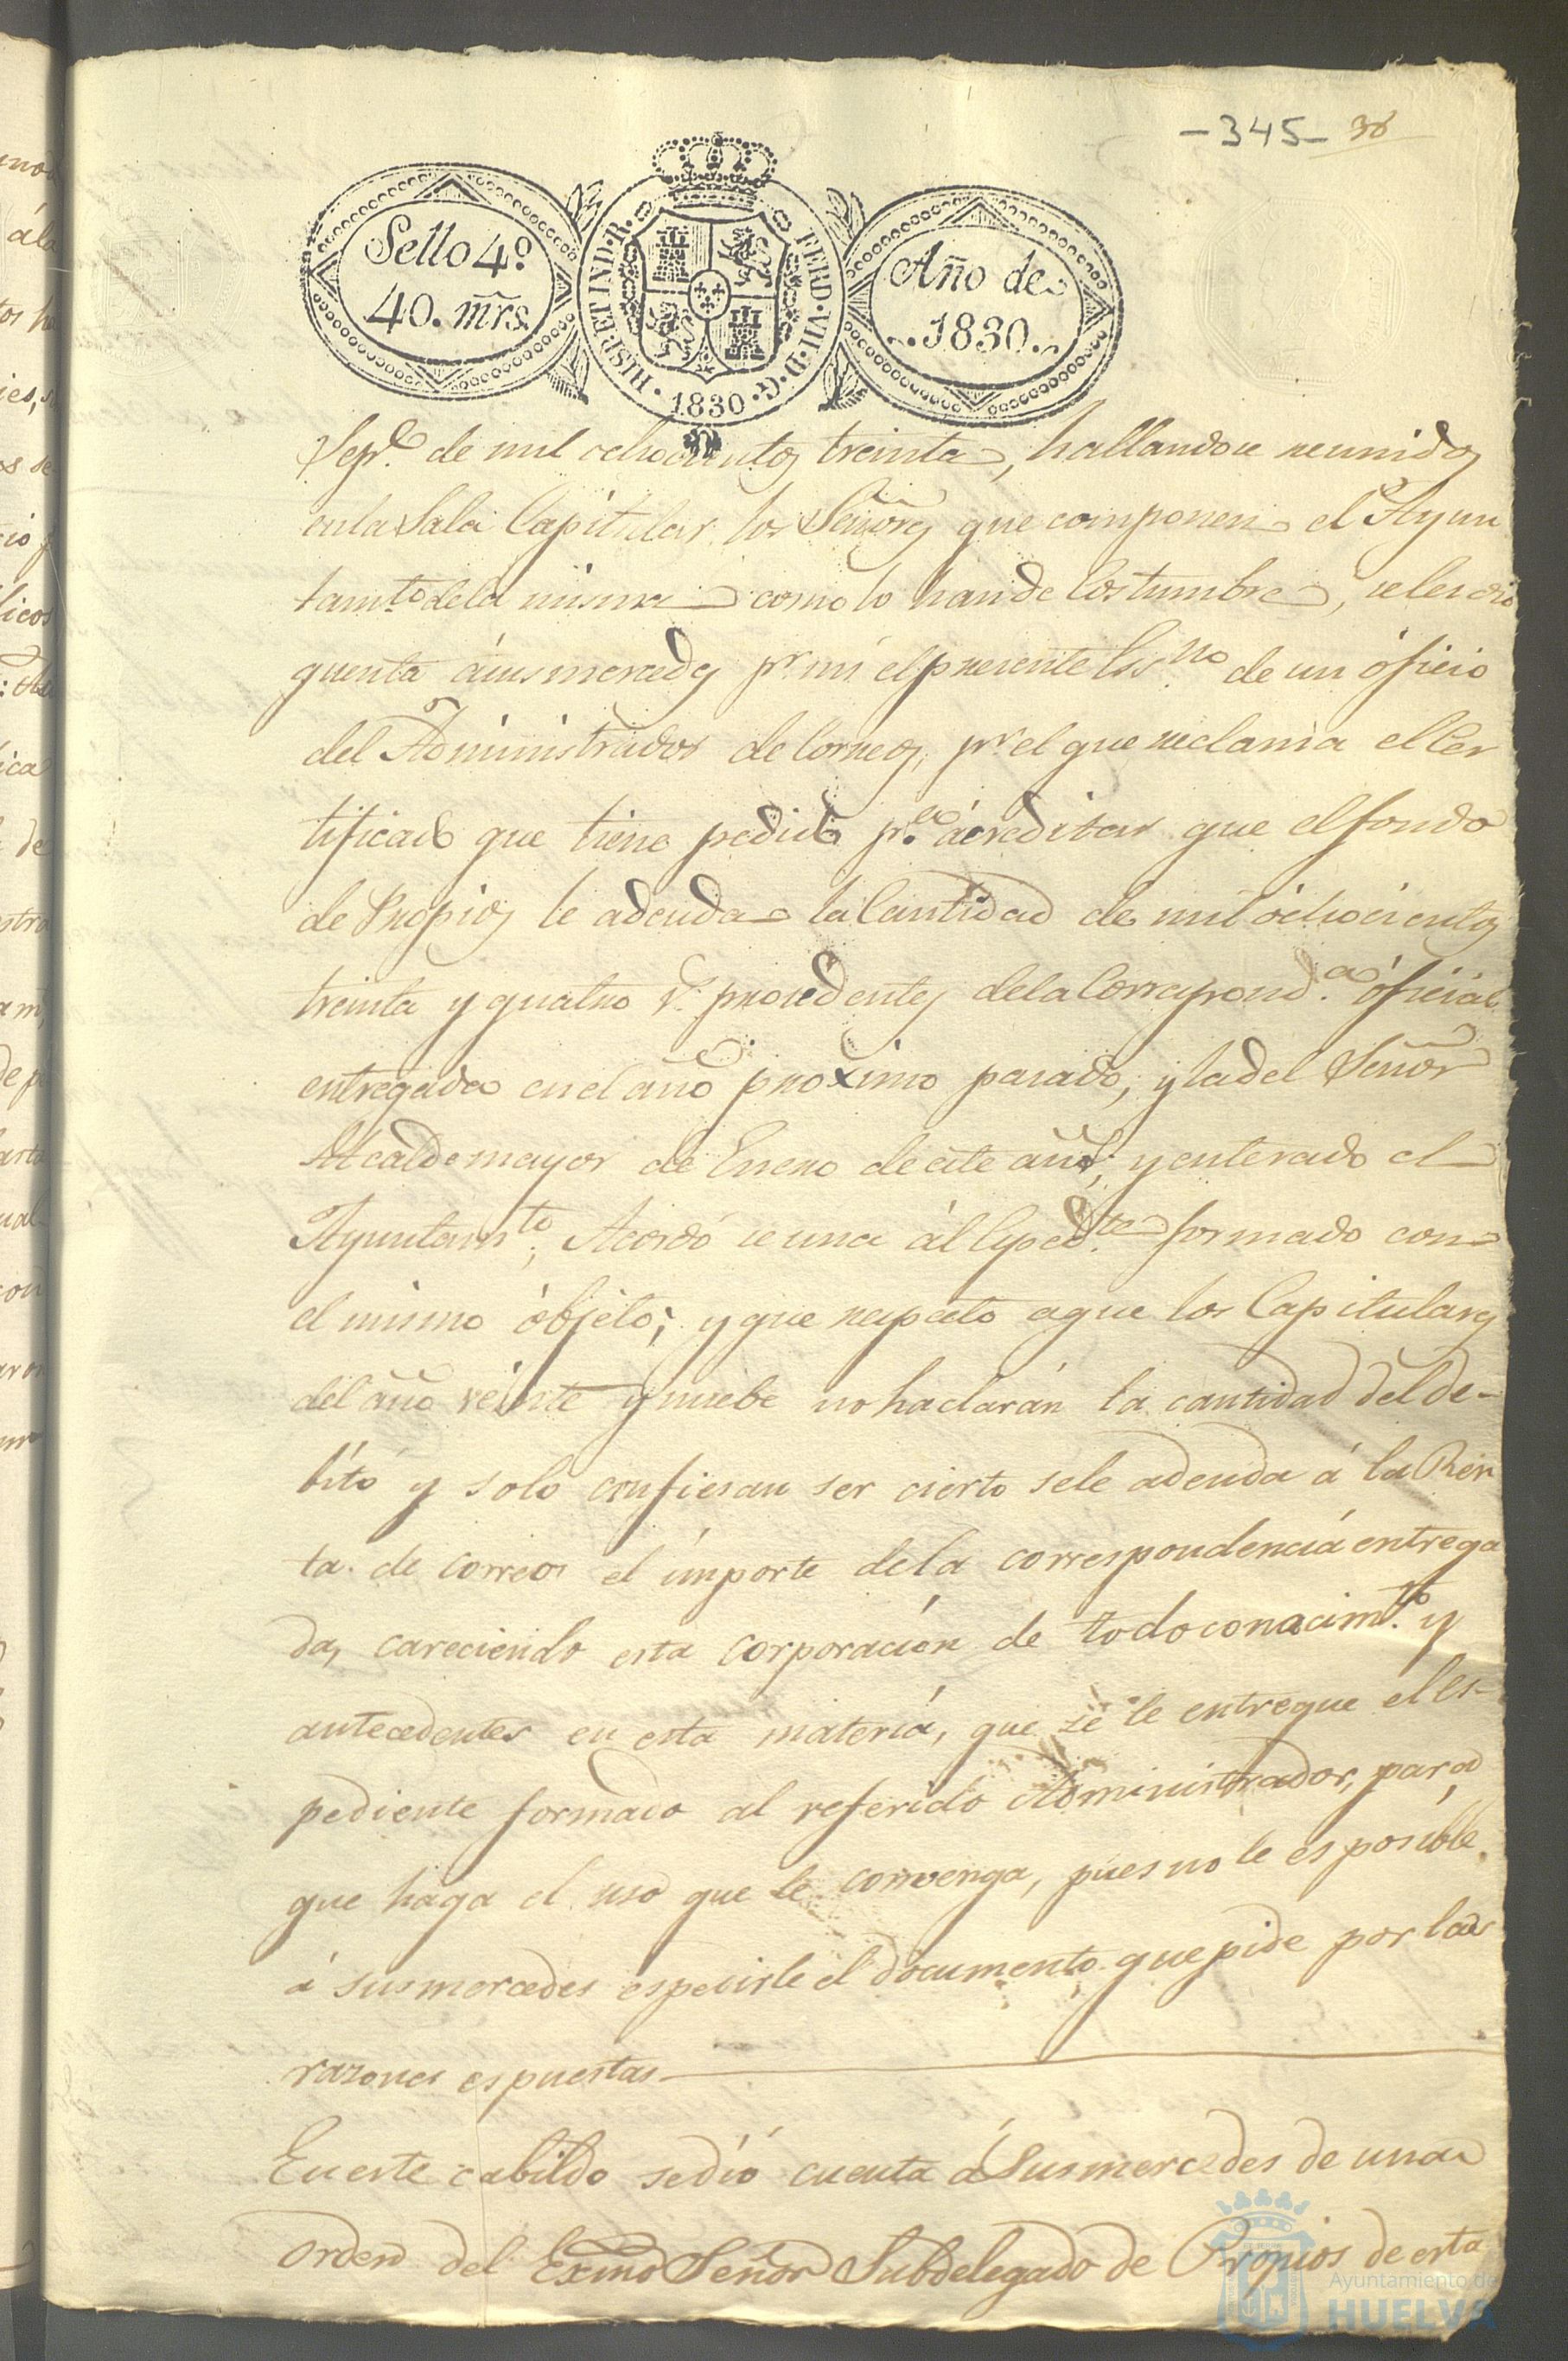 -345- 38
Sello 4º
40. mr̃s.
HISP. ET IND. R.
FERD. VII. D. G.
1830
Año de
1830.
Sepe. de mil ochocientos treinta, hallandose reunidos
enla Sala Capitular los Señores que componen el Ayun
tamto. dela misma como lo han de Costumbre, seles dió
quenta ásus mercedes pr mi el presente Essno de un óficio
del Administrador de Correos, pr el que reclama el Cer
tificado que tiene pedido pa. ácreditar que el fondo
de Propios le adeuda la Cantidad de mil óchocientos
treinta y quatro rs. procedentes dela Correspond.a óficial
entregada en el año proximo pasado, y la del Señor
Alcalde mayor de Enero de este año, y enterado el
Ayuntamto, Acordó se una ál Espedte. formado con
el mismo óbjeto; y que respecto a que los Capitulares
del año veinte y nuebe no haclarán la cantidad del de-
bito y solo confiesan ser cierto sele adeuda á la Ren
ta de correos el importe dela correspondencia entrega
da, careciendo esta corporación de todo conocimto. y
antecedentes en esta materia, que se le entregue el es-
pediente formado al referido Administrador, para
que haga el uso que le convenga, pues no le es posible
á sus mercedes espedirle el documento que pide por las
razones espuestas
En este cabildo sedió cuenta á Sus mercedes de una
orden del Exmo Señor Subdelegado de Propios de esta
Ayuntamiento de
HUELVA